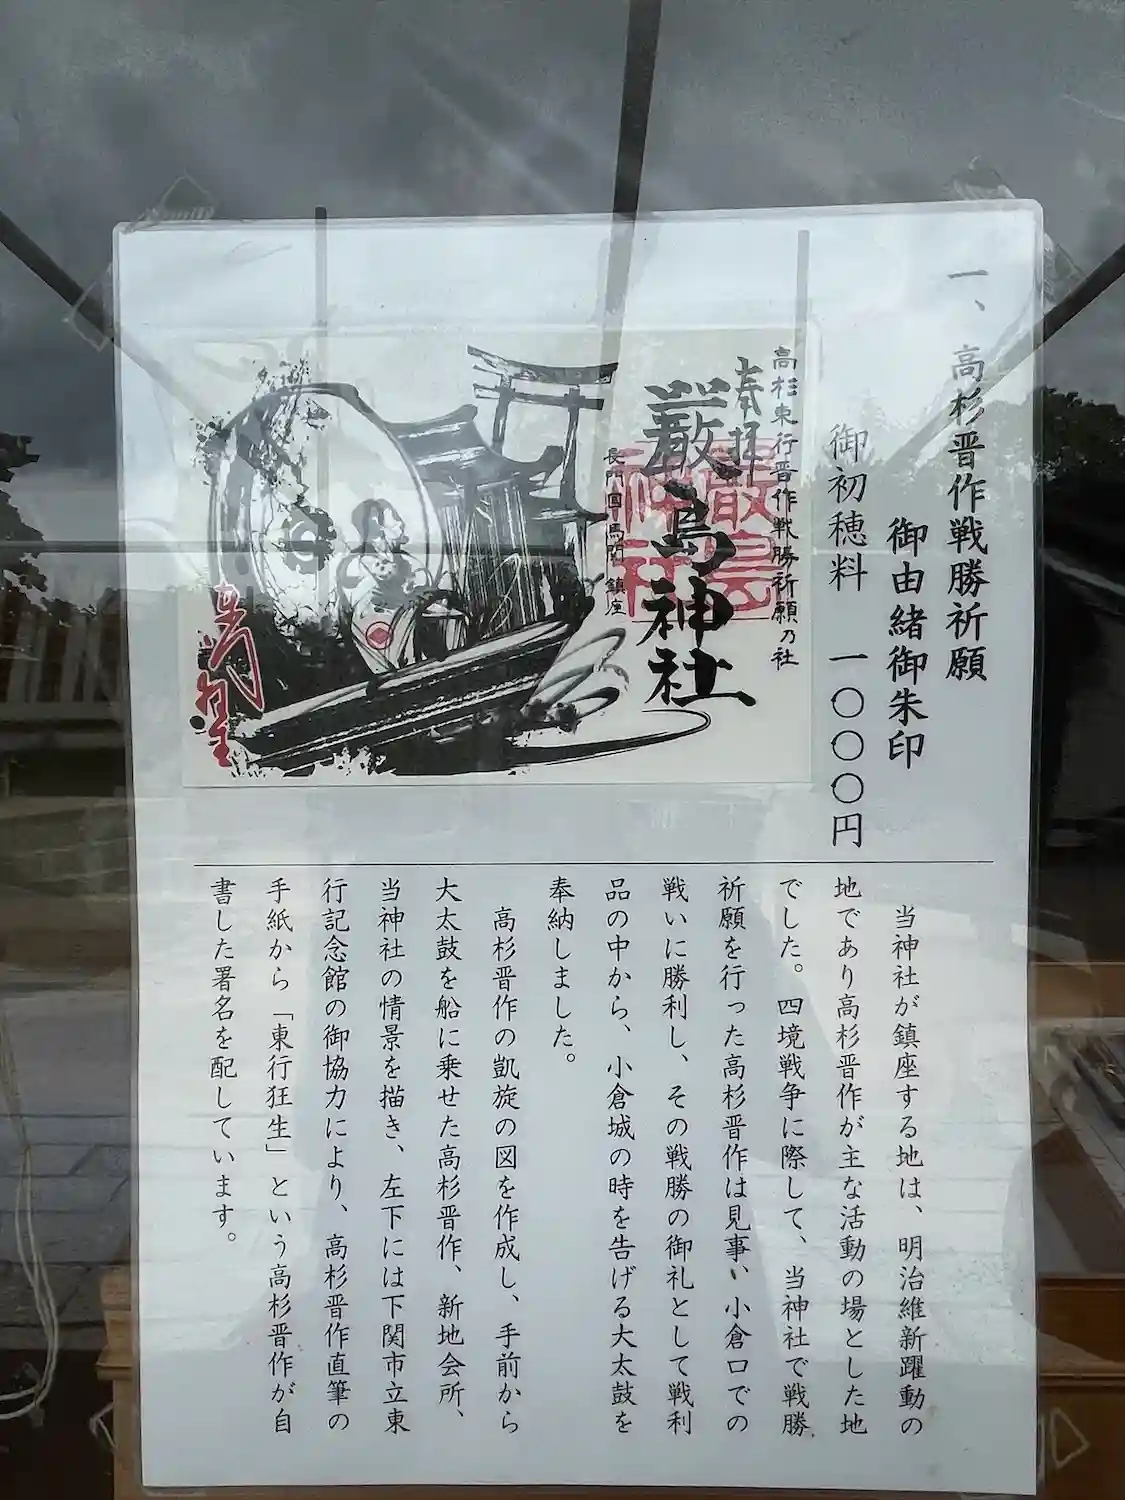 一、高杉晋作戦勝祈願
御由緒御朱印
御初穂料 一〇〇〇円
高杉東行晋作戦勝祈願乃社
奉拝
厳島神社
長門國馬関 鎮座
当神社が鎮座する地は、明治維新躍動の
地であり高杉晋作が主な活動の場とした地
でした。四境戦争に際して、当神社で戦勝
祈願を行った高杉晋作は見事、小倉口での
戦いに勝利し、その戦勝の御礼として戦利
品の中から、小倉城の時を告げる大太鼓を
奉納しました。
高杉晋作の凱旋の図を作成し、手前から
大太鼓を船に乗せた高杉晋作、新地会所、
当神社の情景を描き、左下には下関市立東
行記念館の御協力により、高杉晋作直筆の
手紙から「東行狂生」という高杉晋作が自
書した署名を配しています。